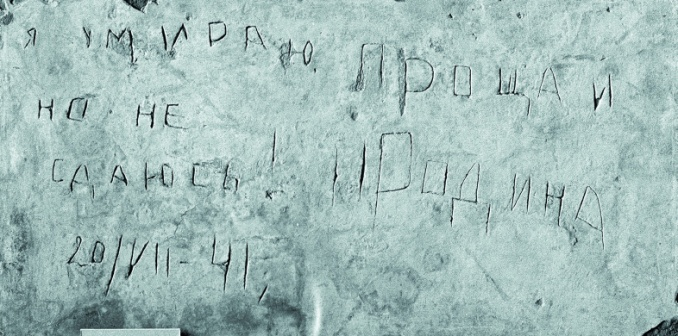 я УМИРАЮ,
НО НЕ
СДАЮСЬ!
ПРОЩАИ
РОДИНА
20/VII-41,